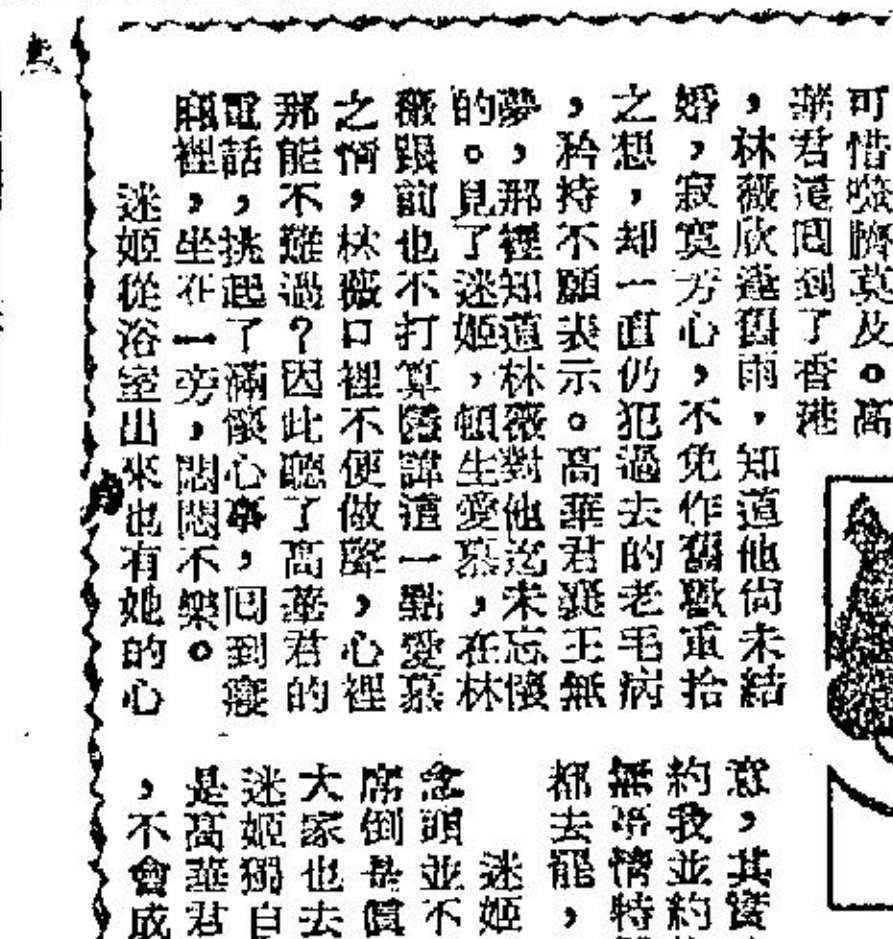 可惜噬臍莫及。高
華君這囘到了香港
，林薇欣逢舊雨，知道他尙未結
婚，寂寞芳心，不免作舊歡重拾
之想，却一直仍犯過去的老毛病
，矜持不願表示。高華君襄王無
夢，那裡知道林薇對他迄未忘懷
的。見了迷姬，頓生愛慕，在林
薇跟前也不打算隱諱這一點愛慕
之情，林薇口裡不便做聲，心裡
那能不難過？因此聽了高華君的
電話，挑起了滿懷心事，囘到寢
廂裡，坐在一旁，悶悶不樂。
迷姬從浴室出來也有她的心
意，其實
約我並約
無搭情特
都去罷，
迷姬
念頭並不
席倒是償
大家也去
迷姬獨自
是高華君
，不會成